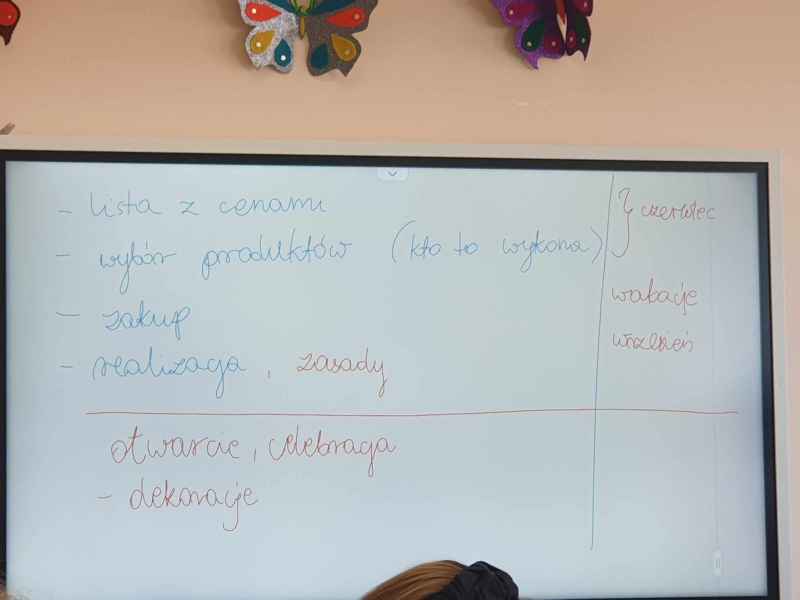 - lista z cenami
- wybór produktów (kto to wykona)
- zakup
- realizacja, zasady
otwarcie, celebracja
- dekoracje
} czerwiec
wakacje
wrzesień